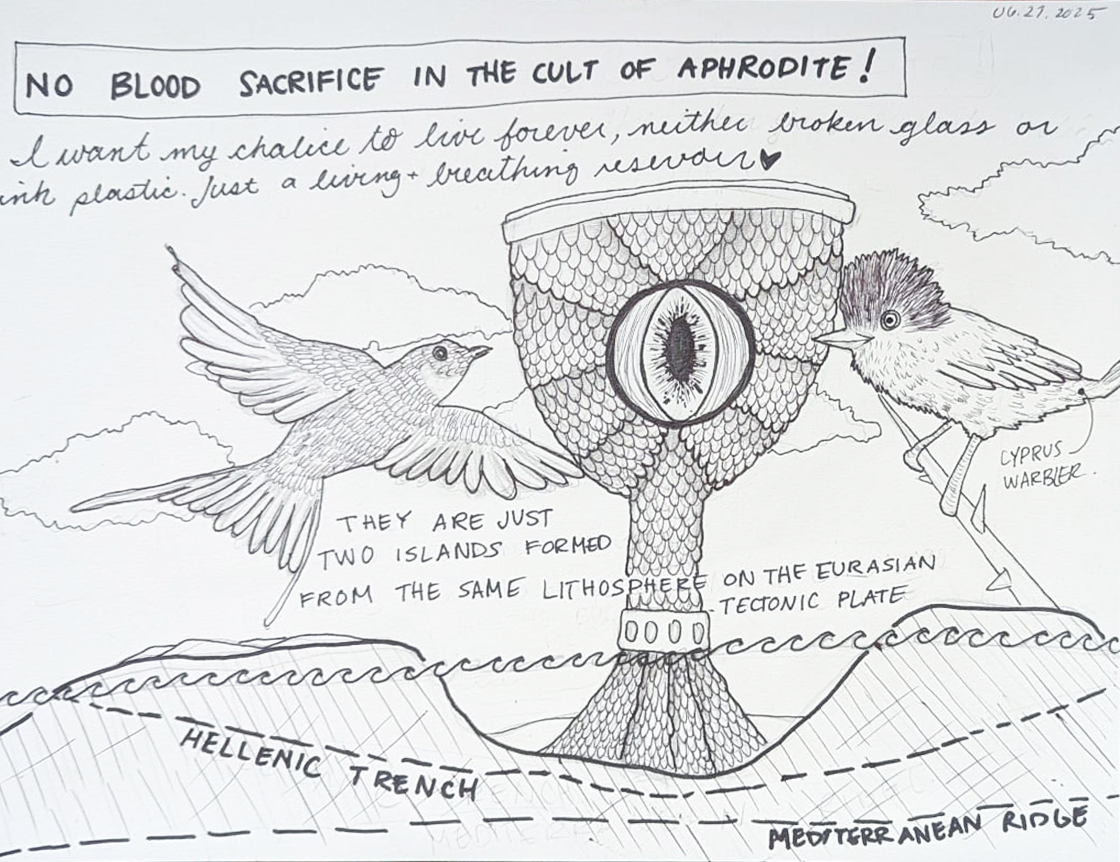 06.27.2025
NO BLOOD SACRIFICE IN THE CULT OF APHRODITE!
I want my chalice to live forever, neither broken glass or
ink plastic. Just a living + breathing resevoir♥
CYPRUS
WARBLER.
THEY ARE JUST
TWO ISLANDS FORMED
FROM THE SAME LITHOSPHERE ON THE EURASIAN
TECTONIC PLATE
HELLENIC TRENCH
MEDITERRANEAN RIDGE